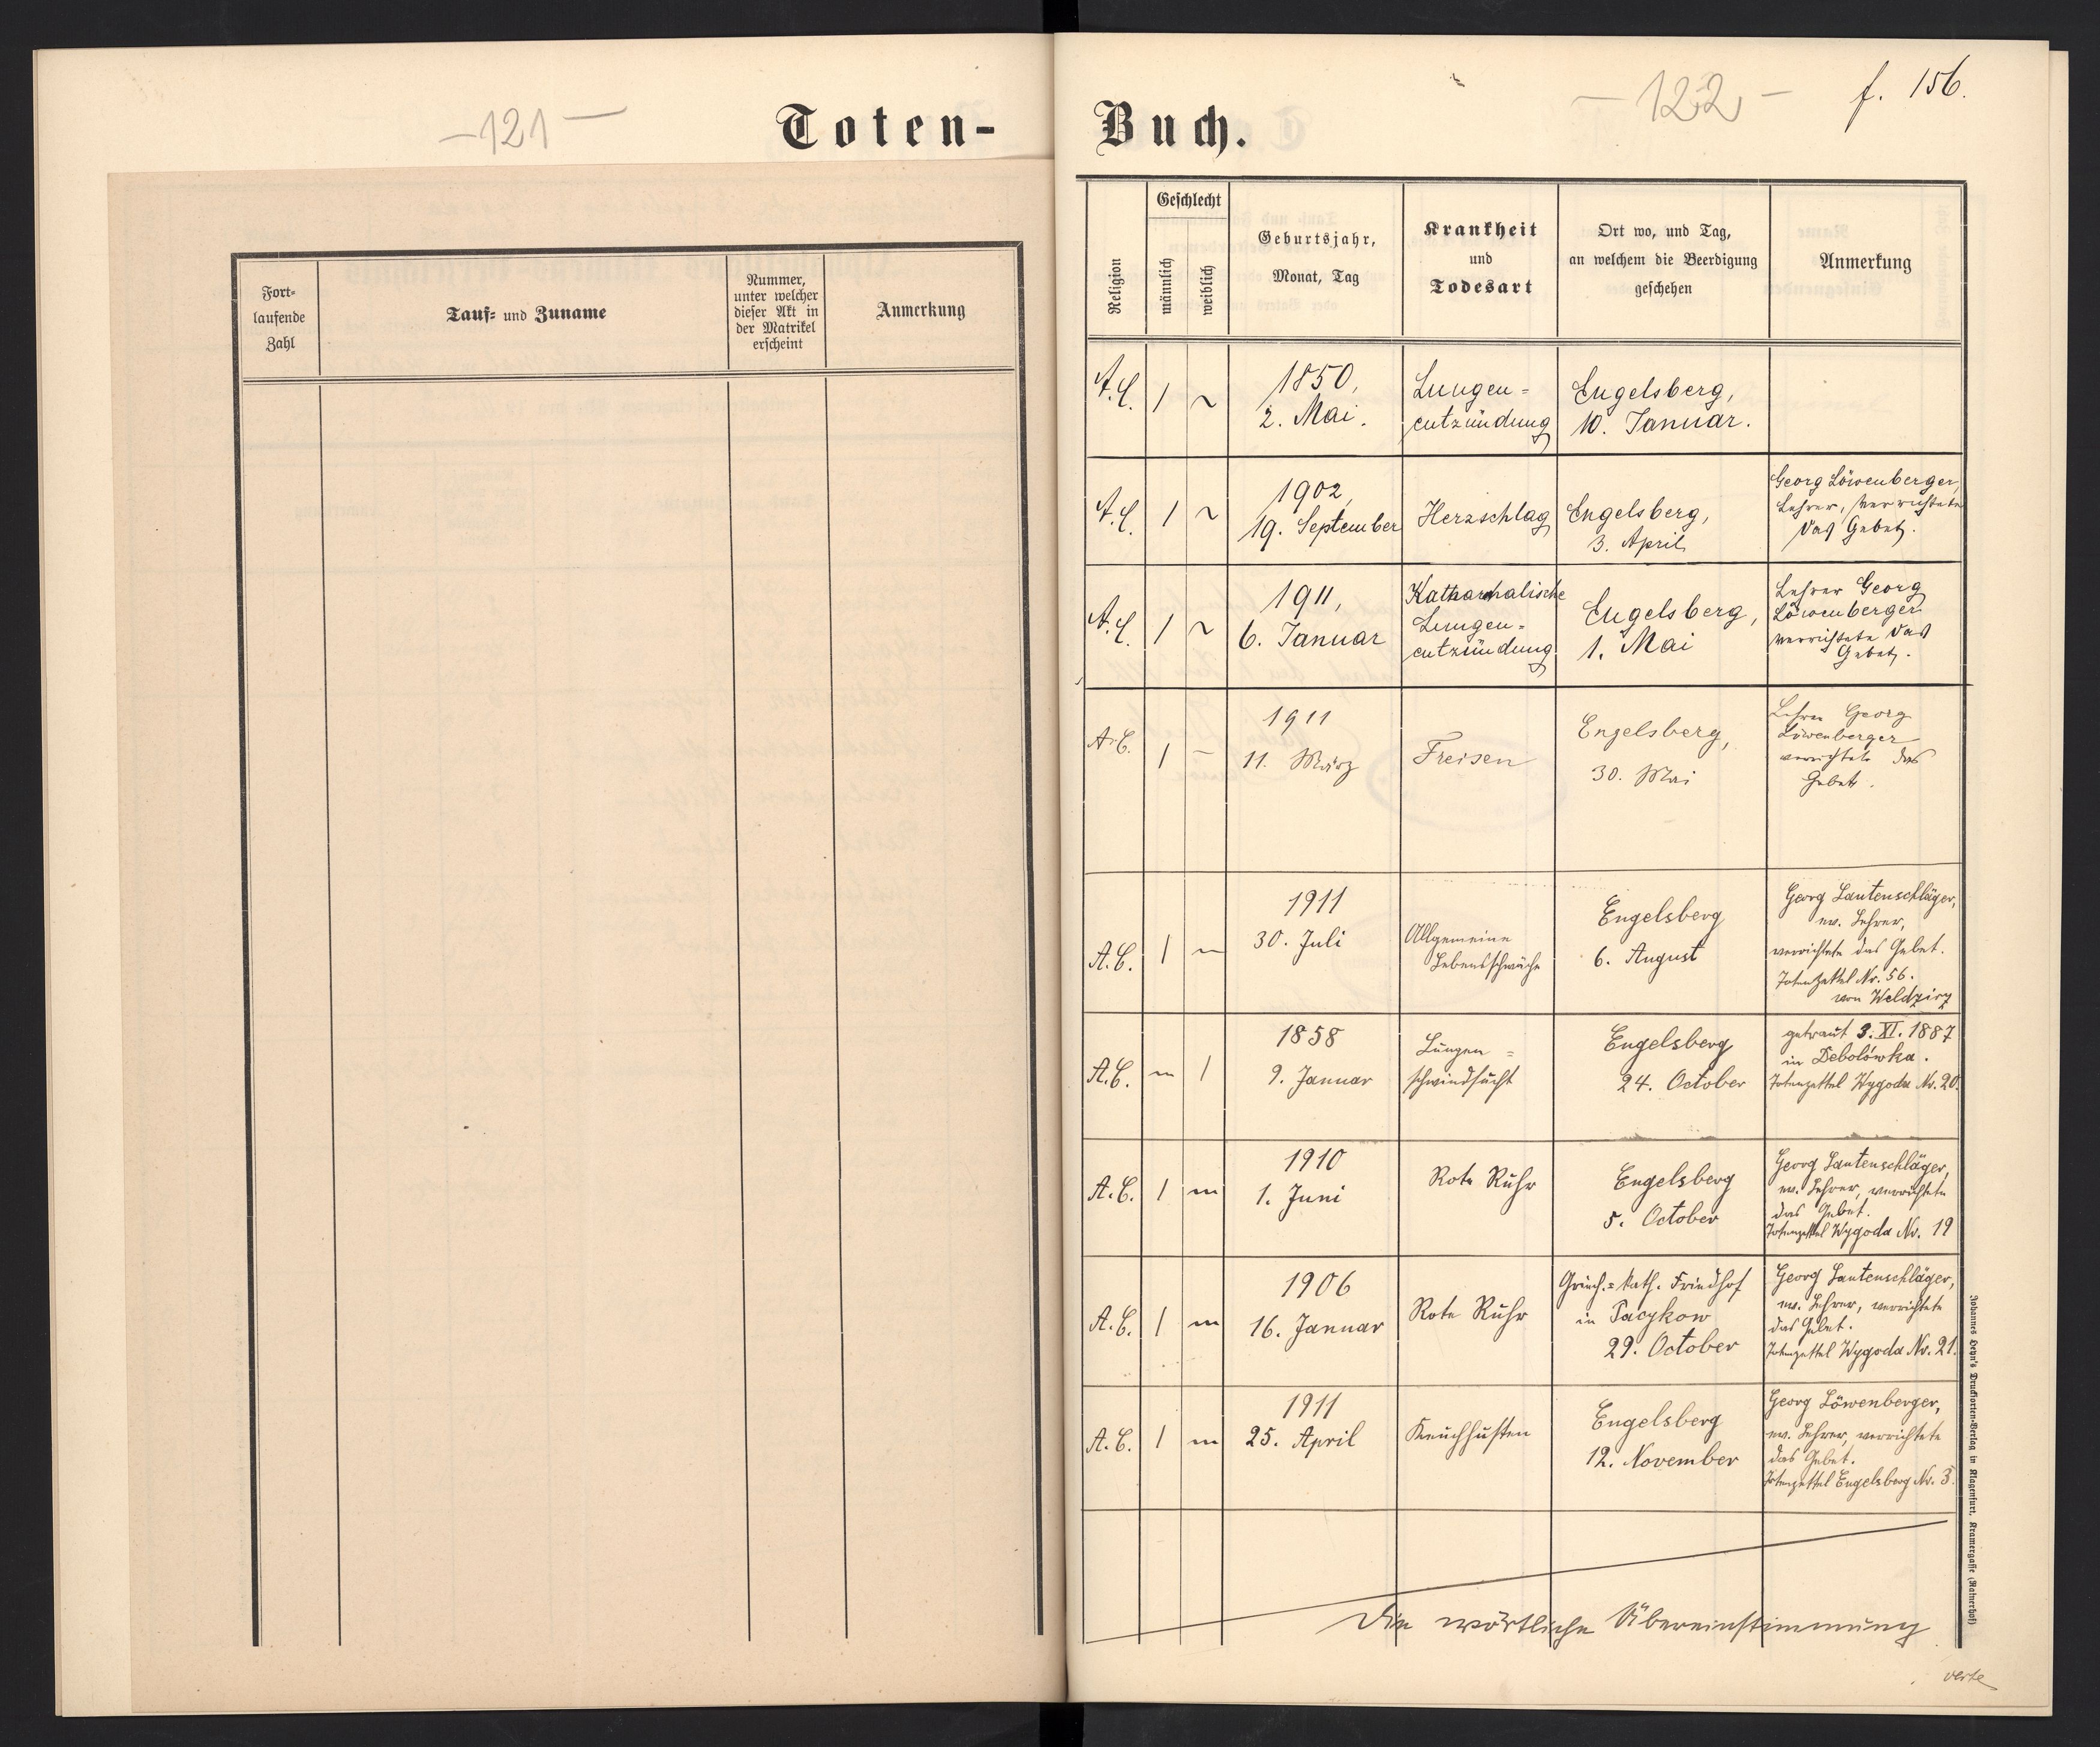 -121-
Toten-
Fort-
laufende
Zahl
Tauf- und Zuname
Nummer,
unter welcher
dieser Akt in
der Matrikel
erscheint
Anmerkung
-122-
f. 156.
Buch.
Religion
Geschlecht
männlich
weiblich
Geburtsjahr,
Monat, Tag
Krankheit
und
Todesart
Ort wo, und Tag,
an welchem die Beerdigung
geschehen
Anmerkung
A.C. 1 ~
1850,
2. Mai.
Lungen=
entzündung
Engelsberg,
10. Januar.
A.C. 1 ~
1902,
19. September
Herzschlag
Engelsberg,
3. April
Georg Löwenberger,
Lehrer, verrichtete
das Gebet.
A.C. 1 ~
1911,
6. Januar
Katharrhalische
Lungen=
entzündung
Engelsberg,
1. Mai
Lehrer Georg
Löwenberger
verrichtete das
Gebet.
A.C. 1 -
1911
11. März
Freisen
Engelsberg,
30. Mai
Lehrer Georg
Löwenberger
verrichtete das
Gebet.
A.C. 1 ~
1911
30. Juli
Allgemeine
Lebensschwäche
Engelsberg
6. August
Georg Lautenschläger,
ev. Lehrer,
verrichtete das Gebet.
Totenzettel Nr. 56.
von Weldzirz
A.C. ~ 1
1858
9. Januar
Lungen=
schwindsucht
Engelsberg
24. October
getraut 3. XI. 1887
in Debolówka.
Totenzettel Wygoda Nr. 20.
A.C. 1 ~
1910
1. Juni
Rote Ruhr
Engelsberg
5. October
Georg Lautenschläger,
ev. Lehrer, verrichtete
das Gebet.
Totenzettel Wygoda Nr. 19
A.C. 1 ~
1906
16. Januar
Rote Ruhr
Griech.=kath. Friedhof
in Pacykow
29. October
Georg Lautenschläger,
ev. Lehrer, verrichtete
das Gebet.
Totenzettel Wygoda Nr. 21.
A.C. 1 ~
1911
25. April
Keuchhusten
Engelsberg
12. November
Georg Löwenberger,
ev. Lehrer, verrichtete
das Gebet.
Totenzettel Engelsberg Nr. 3.
Die wörtliche Übereinstimmung
verte
Johannes Heyn's Drucksorten-Verlag in Klagenfurt, Kramergasse (Rainerhof)